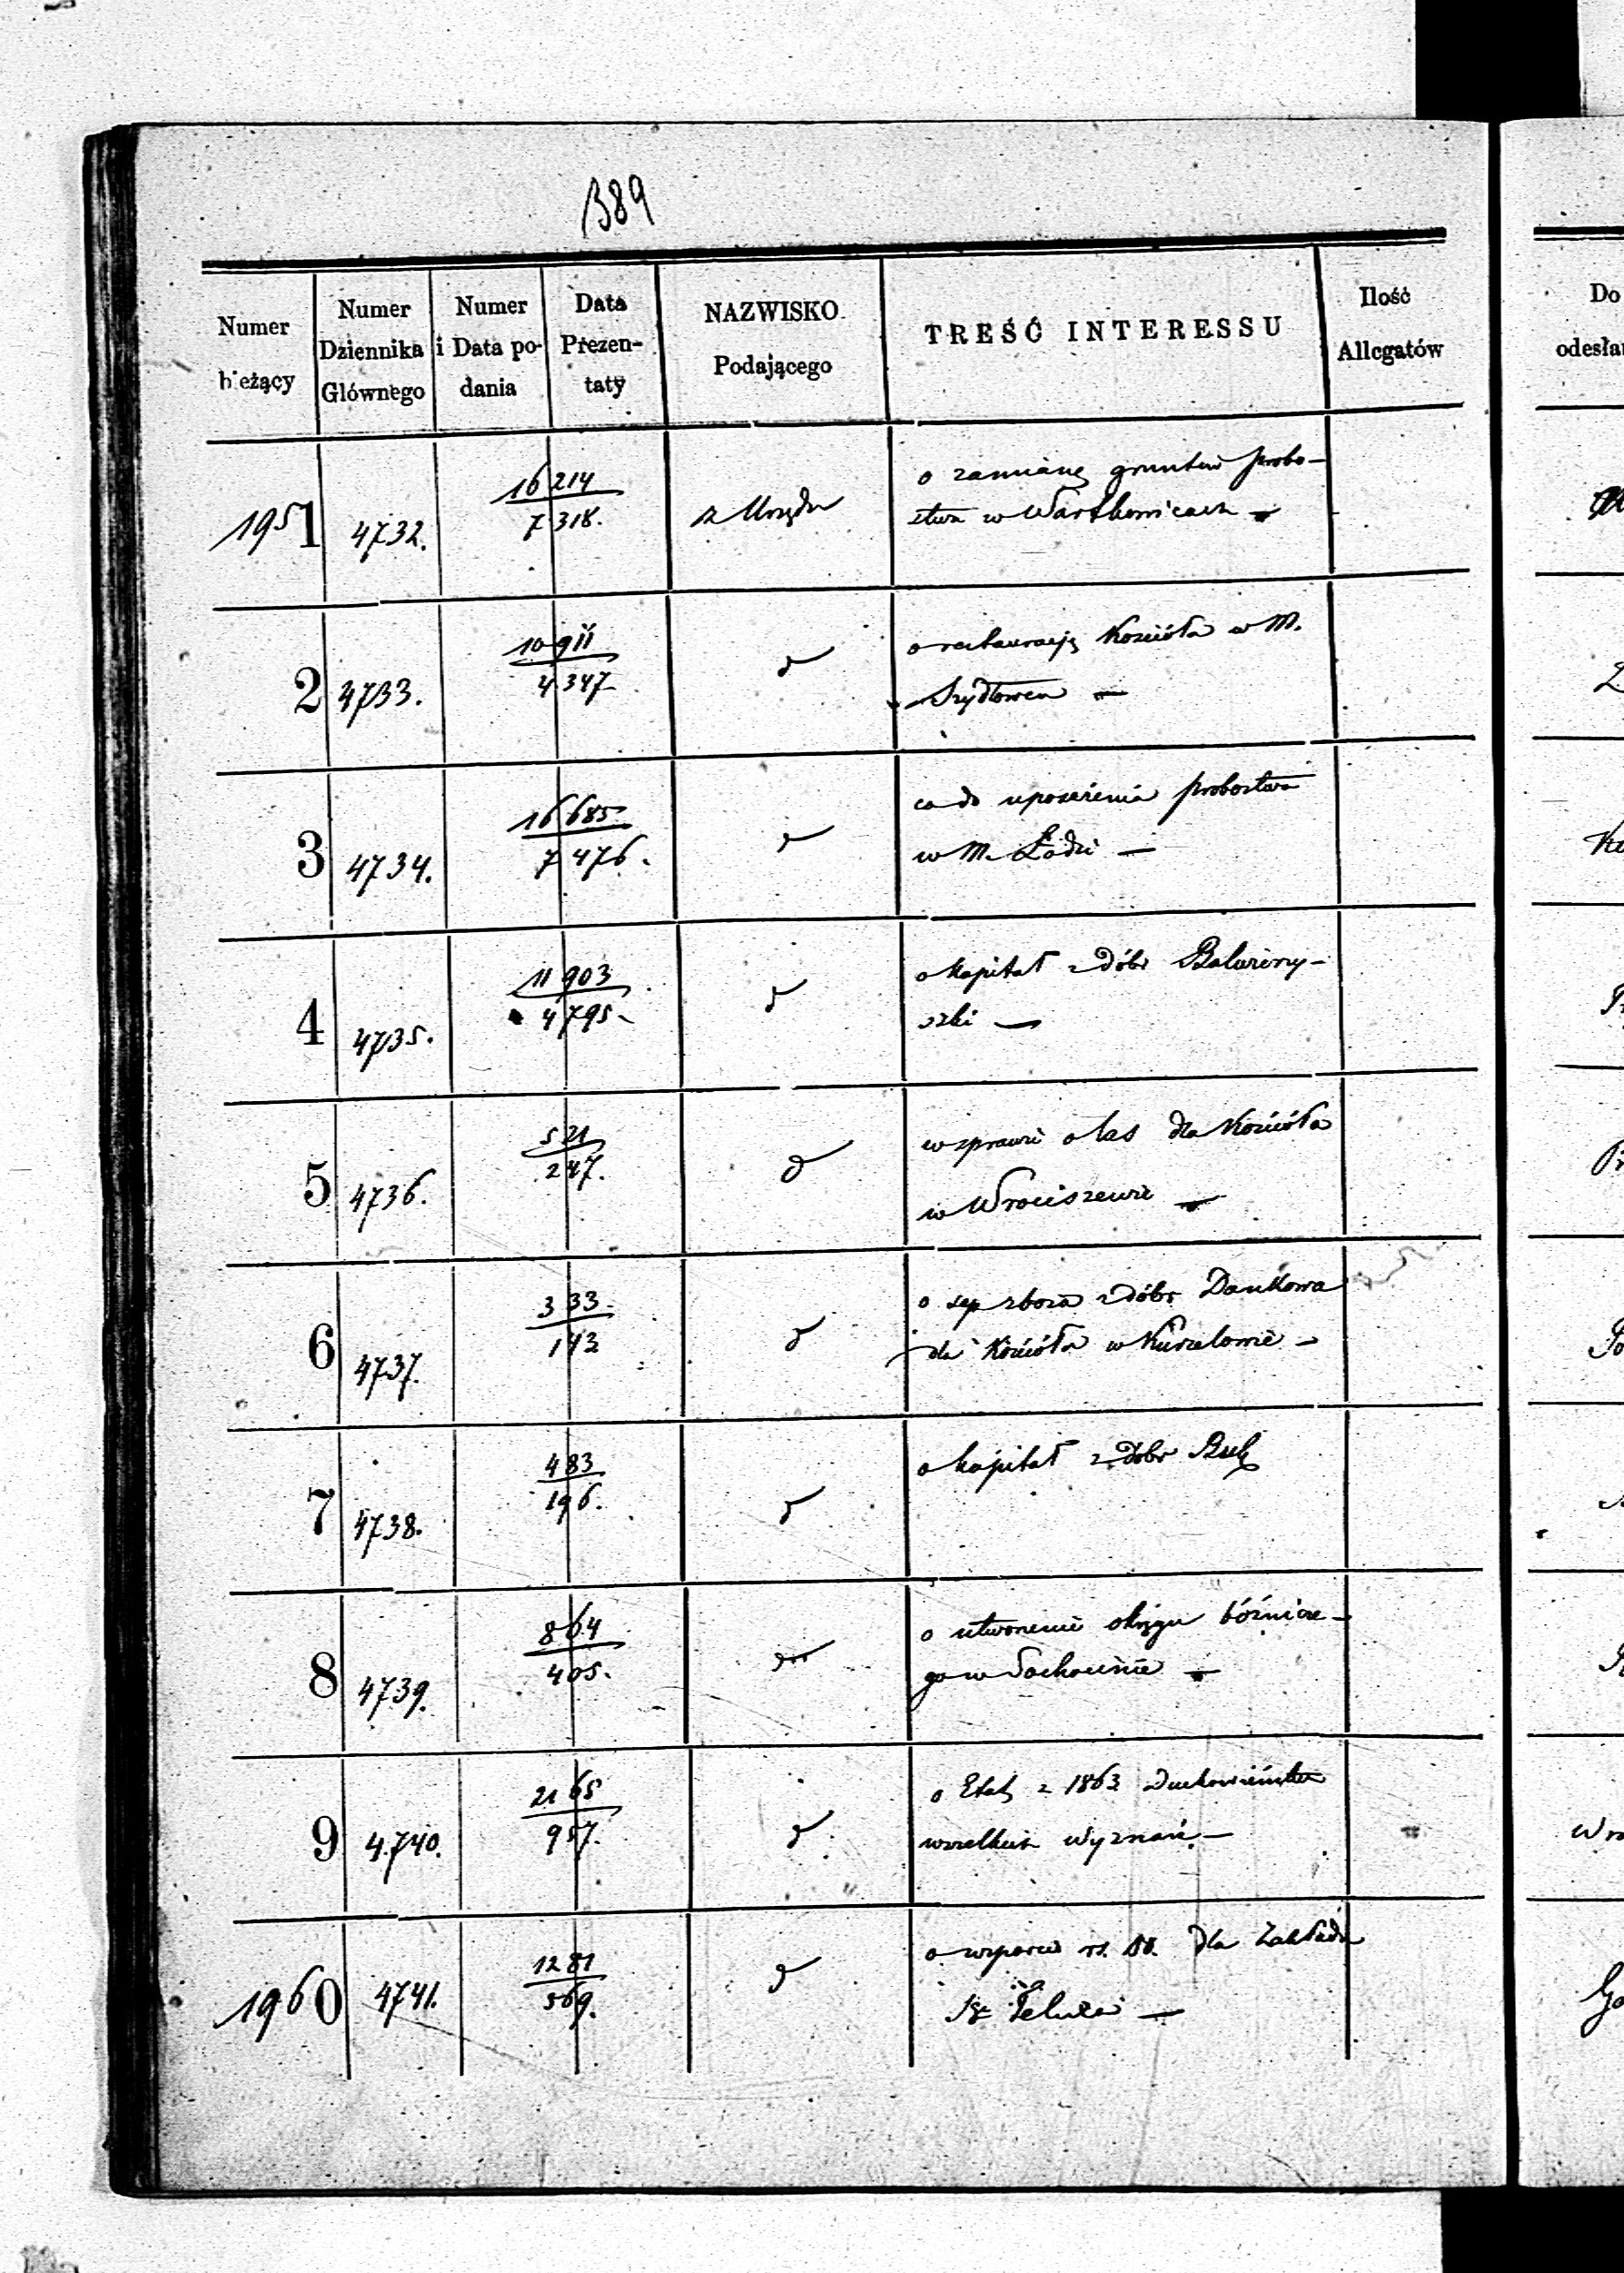 1389
Numer bieżący
Numer Dziennika Głównego
Numer i Data podania
Data Prezentaty
NAZWISKO Podającego
TREŚĆ INTERESSU
Ilość Allegatów
Do
odesłan
1951 4732. 16214/7318. z Urzędu o zamianę gruntów probo-
stwa w Wartkowicach —
2 4733. 10911/4347 o restauracyę Kościoła w M.
Szydłowcu —
3 4734. 16685/7476. co do uposażenia probostwa
w M. Łodzi —
4 4735. 11903/4795 o kapitał z dóbr
szki —
5 4736. 521/247. w sprawie o las dla Kościoła
w Wrociszewie —
6 4737. 333/143 o sep zboża z dóbr Dankowa
dla Kościoła w Kurzelowie —
7 4738. 483/196. o kapitał z dóbr
8 4739. 864/405. o utworzenie okręgu bóźnicze-
go w Sochocinie —
9 4740. 2165/957. o Etaty z 1863 Duchowieństwa
wszelkich Wyznań —
1960 4741. 1281/569. o wsparcie rs. dla Zakładu
—